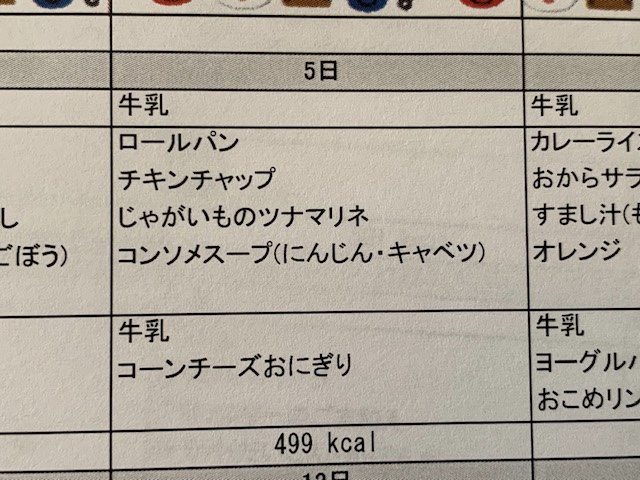 5日
牛乳
ロールパン
チキンチャップ
じゃがいものツナマリネ
コンソメスープ(にんじん・キャベツ)
牛乳
コーンチーズおにぎり
499 kcal
し
ごぼう)
牛乳
カレーライ
おからサラ
すまし汁(も
オレンジ
牛乳
ヨーグル
おこめリン